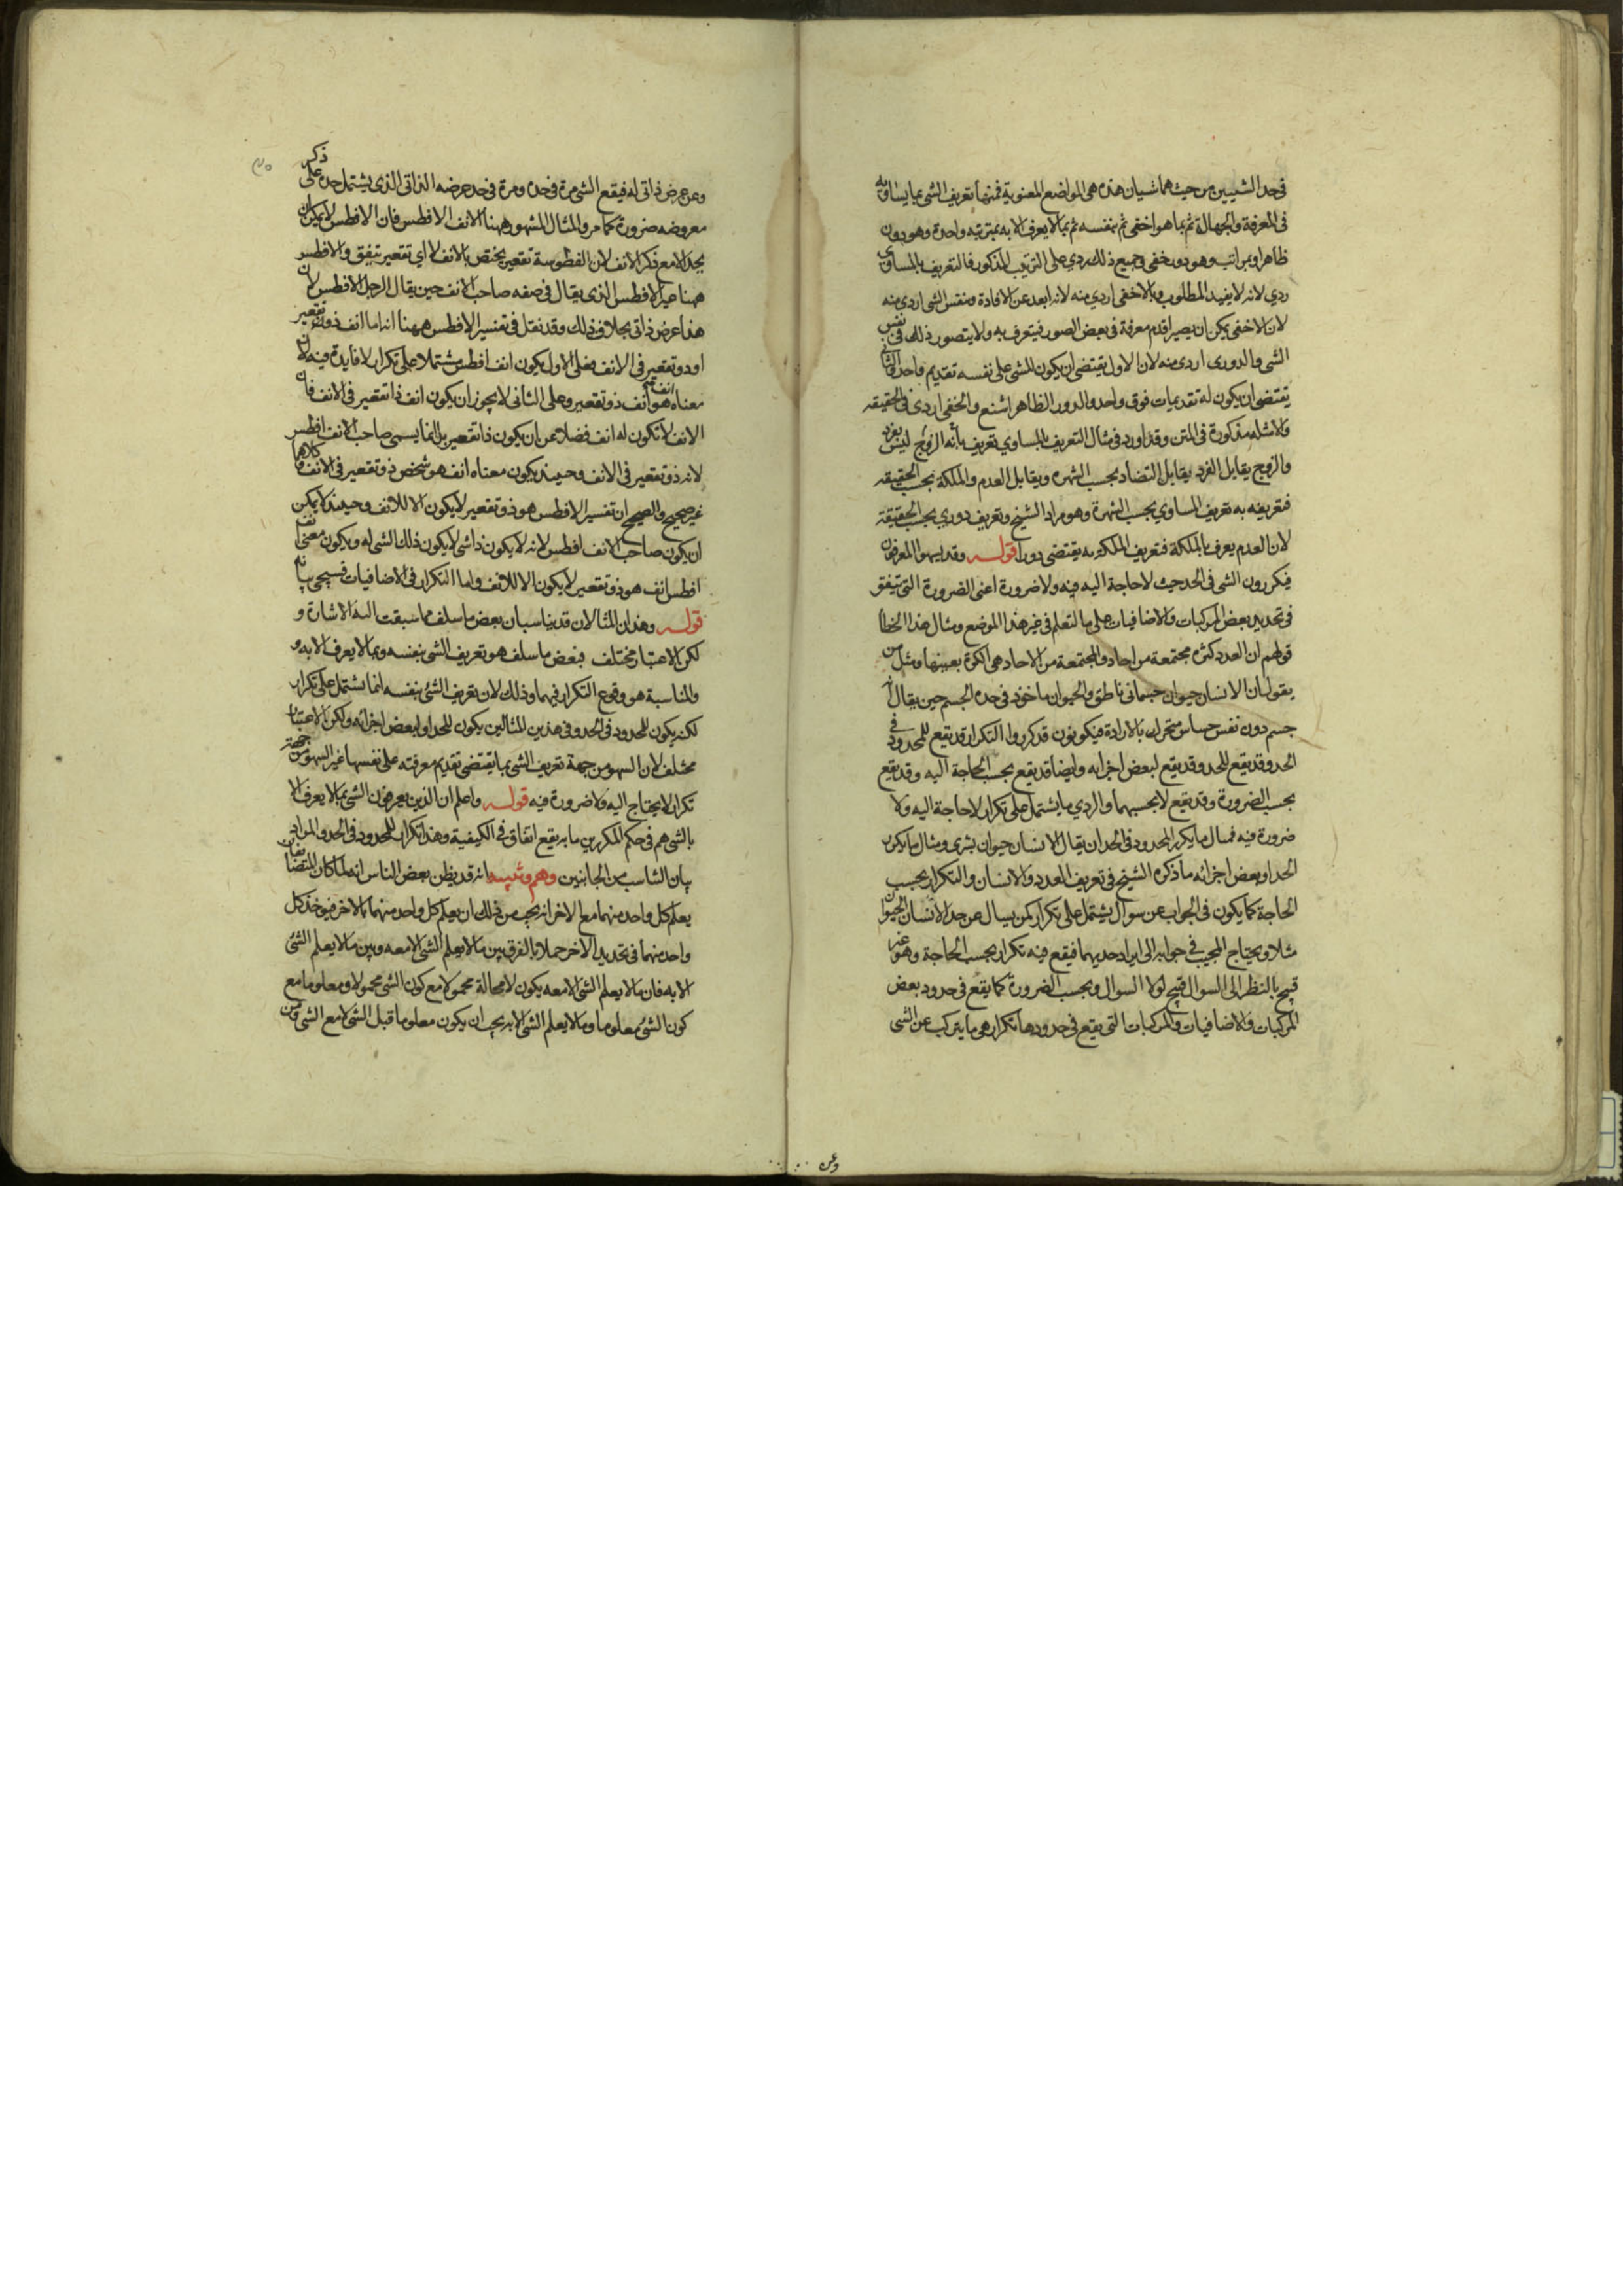 في حد الشيئين من حيث هما شيان هذه هي المواضع المعنوية فمنها تعريف الشي بما يساويه
في المعرفة والجهالة ثم بما هو اخفى ثم بنفسه ثم بما لا يعرف الا به بمرتبه واحدة وهو دور
ظاهر او بمراتب وهو دور خفي وجميع ذلك ردي على الترتيب المذكور فالتعريف بالمساوي
ردي لانه لا يفيد المطلوب وبالاخفى اردي منه لانه ابعد عن الافادة وبنفس الشي اردي منه
لان الاخفى يمكن ان يصير اقدم معرفة في بعض الصور فيتعرف به ولا يتصور ذلك في نفس
الشي والدوري اردى منه لان الاول يقتضي ان يكون للشي على نفسه تقديم واحد والثاني
يقتضي ان يكون له تقديمات فوق واحد والدور الظاهر اشنع والخفي اردى في الحقيقه
والامثله مذكورة في المتن وقد اورد في مثال التعريف بالمساوي تعريف بانه الزوج ليس بفرد
والزوج يقابل الفرد يقابل التضاد بحسب الشهره ويقابل العدم والملكة بحسب الحقيقه
فتعريفه به تعريف المساوي بحسب الشهرة وهو مراد الشيخ وتعريف دوري بحسب الحقيقة
لان العدم يعرف بالملكة فتعريف الملكة به يقتضي دورا قوله وقد يسهوا المعرفون
فيكررون الشي في الحد حيث لا حاجة اليه فيه ولا ضرورة اعنى الضرورة التي تتفق
في تحديد بعض المركبات والاضافيات على ما لتعلم في غير هذا الموضع ومثال هذا الخطا
قولهم ان العدد كثره مجتمعة من احاد والمجتمعة من الاحاد هي الكثرة بعينها ومثل من
يقول ان الانسان حيوان جسماني ناطق والحيوان ماخوذ في حده الجسم حين يقال انه
جسم ذو نفس حساس متحرك بالارادة فيكونون قد كرروا التكرار قد يقع للمحدود في
الحد وقد يقع للحد وقد يقع لبعض اجزايه وايضا قد يقع بحسب الحاجة اليه وقد يقع
بحسب الضرورة وقد يقع لا بحسبهما والردي ما يشتمل على تكرار لا حاجة اليه ولا
ضرورة فيه فمثال ما يكرر المحدود في الحد ان يقال الانسان حيوان بشري ومثال ما يكرر
الحد او بعض اجزائه ما ذكره الشيخ في تعريف العدد والانسان والتكرار بحسب
الحاجة كما يكون في الجواب عن سوال يشتمل على تكرار كمن يسال عن حد الانسان الحيوان
مثلا ويحتاج المجيب في جوابه الى ايراد حديهما فيقع فيه تكرار بحسب الحاجة وهو غير
قبيح بالنظر الى السوال قبيح لولا السوال وبحسب الضرورة كما يقع في حدود بعض
المركبات والاضافيات والمركبات التي يقع في حدودها تكرار هي ما يتركب عن الشي
وعن
وعن عرض ذاتي له فيقع الشي مرة في حده ومرة في حد عرضه الذاتي الذي يشتمل حده على ذكر
معروضه ضرورة كما مر والمثال المشهور ههنا الانف الافطس فان الافطس لا يمكن ان
يحد الا مع ذكر الانف لان الفطوسة تقعير يختص بالانف لا اي تقعير يتفق والافطس
ههنا غير الافطس الذي يقال في صفه صاحب الانف حين يقال الرجل الافطس لان
هذا عرض ذاتي بخلاف ذلك وقد نقل في تفسير الافطس ههنا انه اما انف ذو تقعير
او ذو تقعير في الانف فعلى الاول يكون انف افطس مشتملا على تكرار لا فايدة فيه لان
معناه انف هو انف ذو تقعير وعلى الثاني لا يجوز ان يكون انف ذا تقعير في الانف فان
الانف لا تكون له انف فضلا عن ان يكون ذا تقعير بل انما يسمى صاحب الانف افطس
لانه ذو تقعير في الانف وحينئذ يكون معناه انف هو شخص ذو تقعير في الانف وكلاهما
غير صحيح والصحيح ان تفسير الافطس هو ذو تقعير لا يكون الا للانف وحينئذ لا يمكن
ان يكون صاحب الانف افطس لانه لا يكون ذا شي لا يكون ذلك الشي له ويكون معنى انف
افطس انف هو ذو تقعير لا يكون الا للانف واما التكرار في الاضافيات فسيجي بيانه
قوله وهذان المثالان قد يناسبان بعض ما سلف مما سبقت اليه الاشارة و
لكن الاعتبار مختلف فبعض ما سلف هو تعريف الشي بنفسه وبما لا يعرف الا به و
والمناسبة هو وقوع التكرار فيهما وذلك لان تعريف الشي بنفسه انما يشتمل على تكرار
لكنه يكون للمحدود في الحد وفي هذين المثالين يكون للحد او لبعض اجزائه ولكن الاعتبار
مختلف لان السهو من جهة تعريف الشي بما يقتضي تقديم معرفته على نفسها غير السهو من جهة
تكرار لا يحتاج اليه ولا ضرورة فيه قوله واعلم ان الذين يعرفون الشي بما لا يعرف الا
بالشي هم في حكم المكررين ما بر يقع اتفاق في الكيفية وهذا تكرار للمحدود في الحد والمراد
بيان التناسب من الجانبين وهم وتنبيه انه قد يظن بعض الناس انه لما كان المتضايفان
يعلم كل واحد منهما مع الاخر انه يجب من ذلك ان يعلم كل واحد منهما بالاخر فيوخذ كل
واحد منهما في تحديد الاخر جهلا بالفرق بين ما لا يعلم الشي الا معه وبين ما لا يعلم الشي
الا به فان ما لا يعلم الشي الا معه يكون لا محالة مجهولا مع كون الشي مجهولا ومعلوما مع
كون الشي معلوما وما لا يعلم الشي الا به يجب ان يكون معلوما قبل الشي لا مع الشي ومن